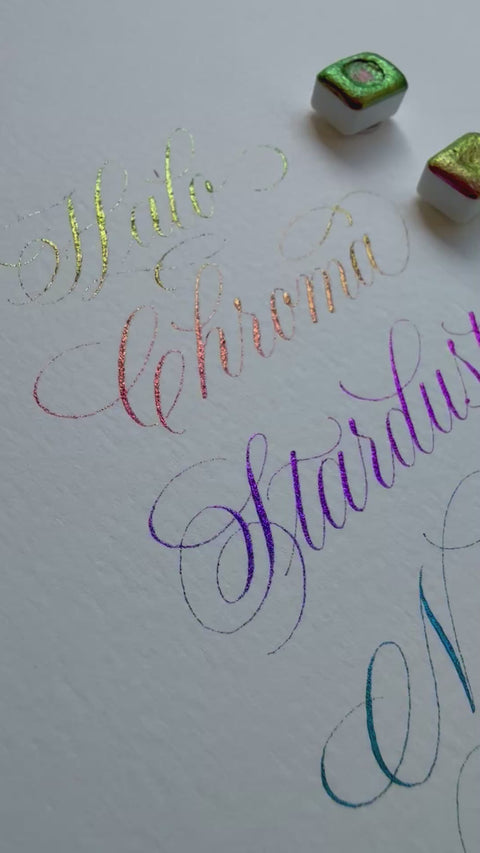 Halo
Chroma
Stardust
N